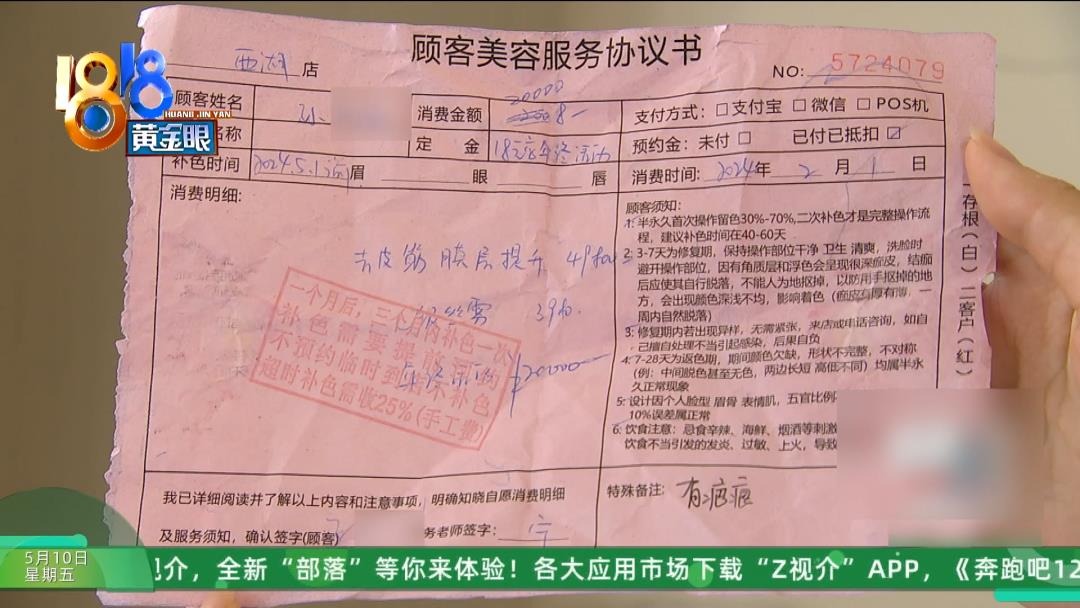 顾客美容服务协议书
西湖店
NO: 5724079
1818
HUANG JIN YAN
黄金眼
顾客姓名
消费金额 20000
支付方式: □支付宝 □微信 □POS机
名称
定 金
预约金: 未付□ 已付已抵扣☑
补色时间 2024.5.1 眉 眼 唇
消费时间: 2024年 2月 1日
消费明细:
去皮 筋膜层提升
一个月后,三个月内补色一次
补色需要提前预约
不预约临时到店不补色
超时补色需收25%(手工费)
20000
顾客须知:
1: 半永久首次操作留色30%-70%,二次补色才是完整操作流
程, 建议补色时间在40-60天
2: 3-7天为修复期, 保持操作部位干净 卫生 清爽, 洗脸时
避开操作部位, 因有角质层和浮色会呈现很深痂皮, 结痂
后应使其自行脱落, 不能人为地抠掉, 以防用手抠掉的地
方, 会出现颜色深浅不均, 影响着色 (痂皮有厚有薄, 一
周内自然脱落)
3: 修复期内若出现异样, 无需紧张, 来店或电话咨询, 如自
己擅自处理不当引起感染, 后果自负
4: 7-28天为返色期, 期间颜色欠缺, 形状不完整, 不对称
(例: 中间脱色甚至无色, 两边长短 高低不同) 均属半永
久正常现象
5: 设计因个人脸型 眉骨 表情肌, 五官比例
10%误差属正常
6: 饮食注意: 忌食辛辣、海鲜、烟酒等刺激
饮食不当引发的发炎、过敏、上火, 导致
一存根(白) 二客户(红)
特殊备注: 有疤痕
我已详细阅读并了解以上内容和注意事项, 明确知晓自愿消费明细
及服务须知, 确认签字(顾客)
务老师签字:
5月10日
星期五
视介, 全新“部落”等你来体验! 各大应用市场下载“Z视介”APP, 《奔跑吧12